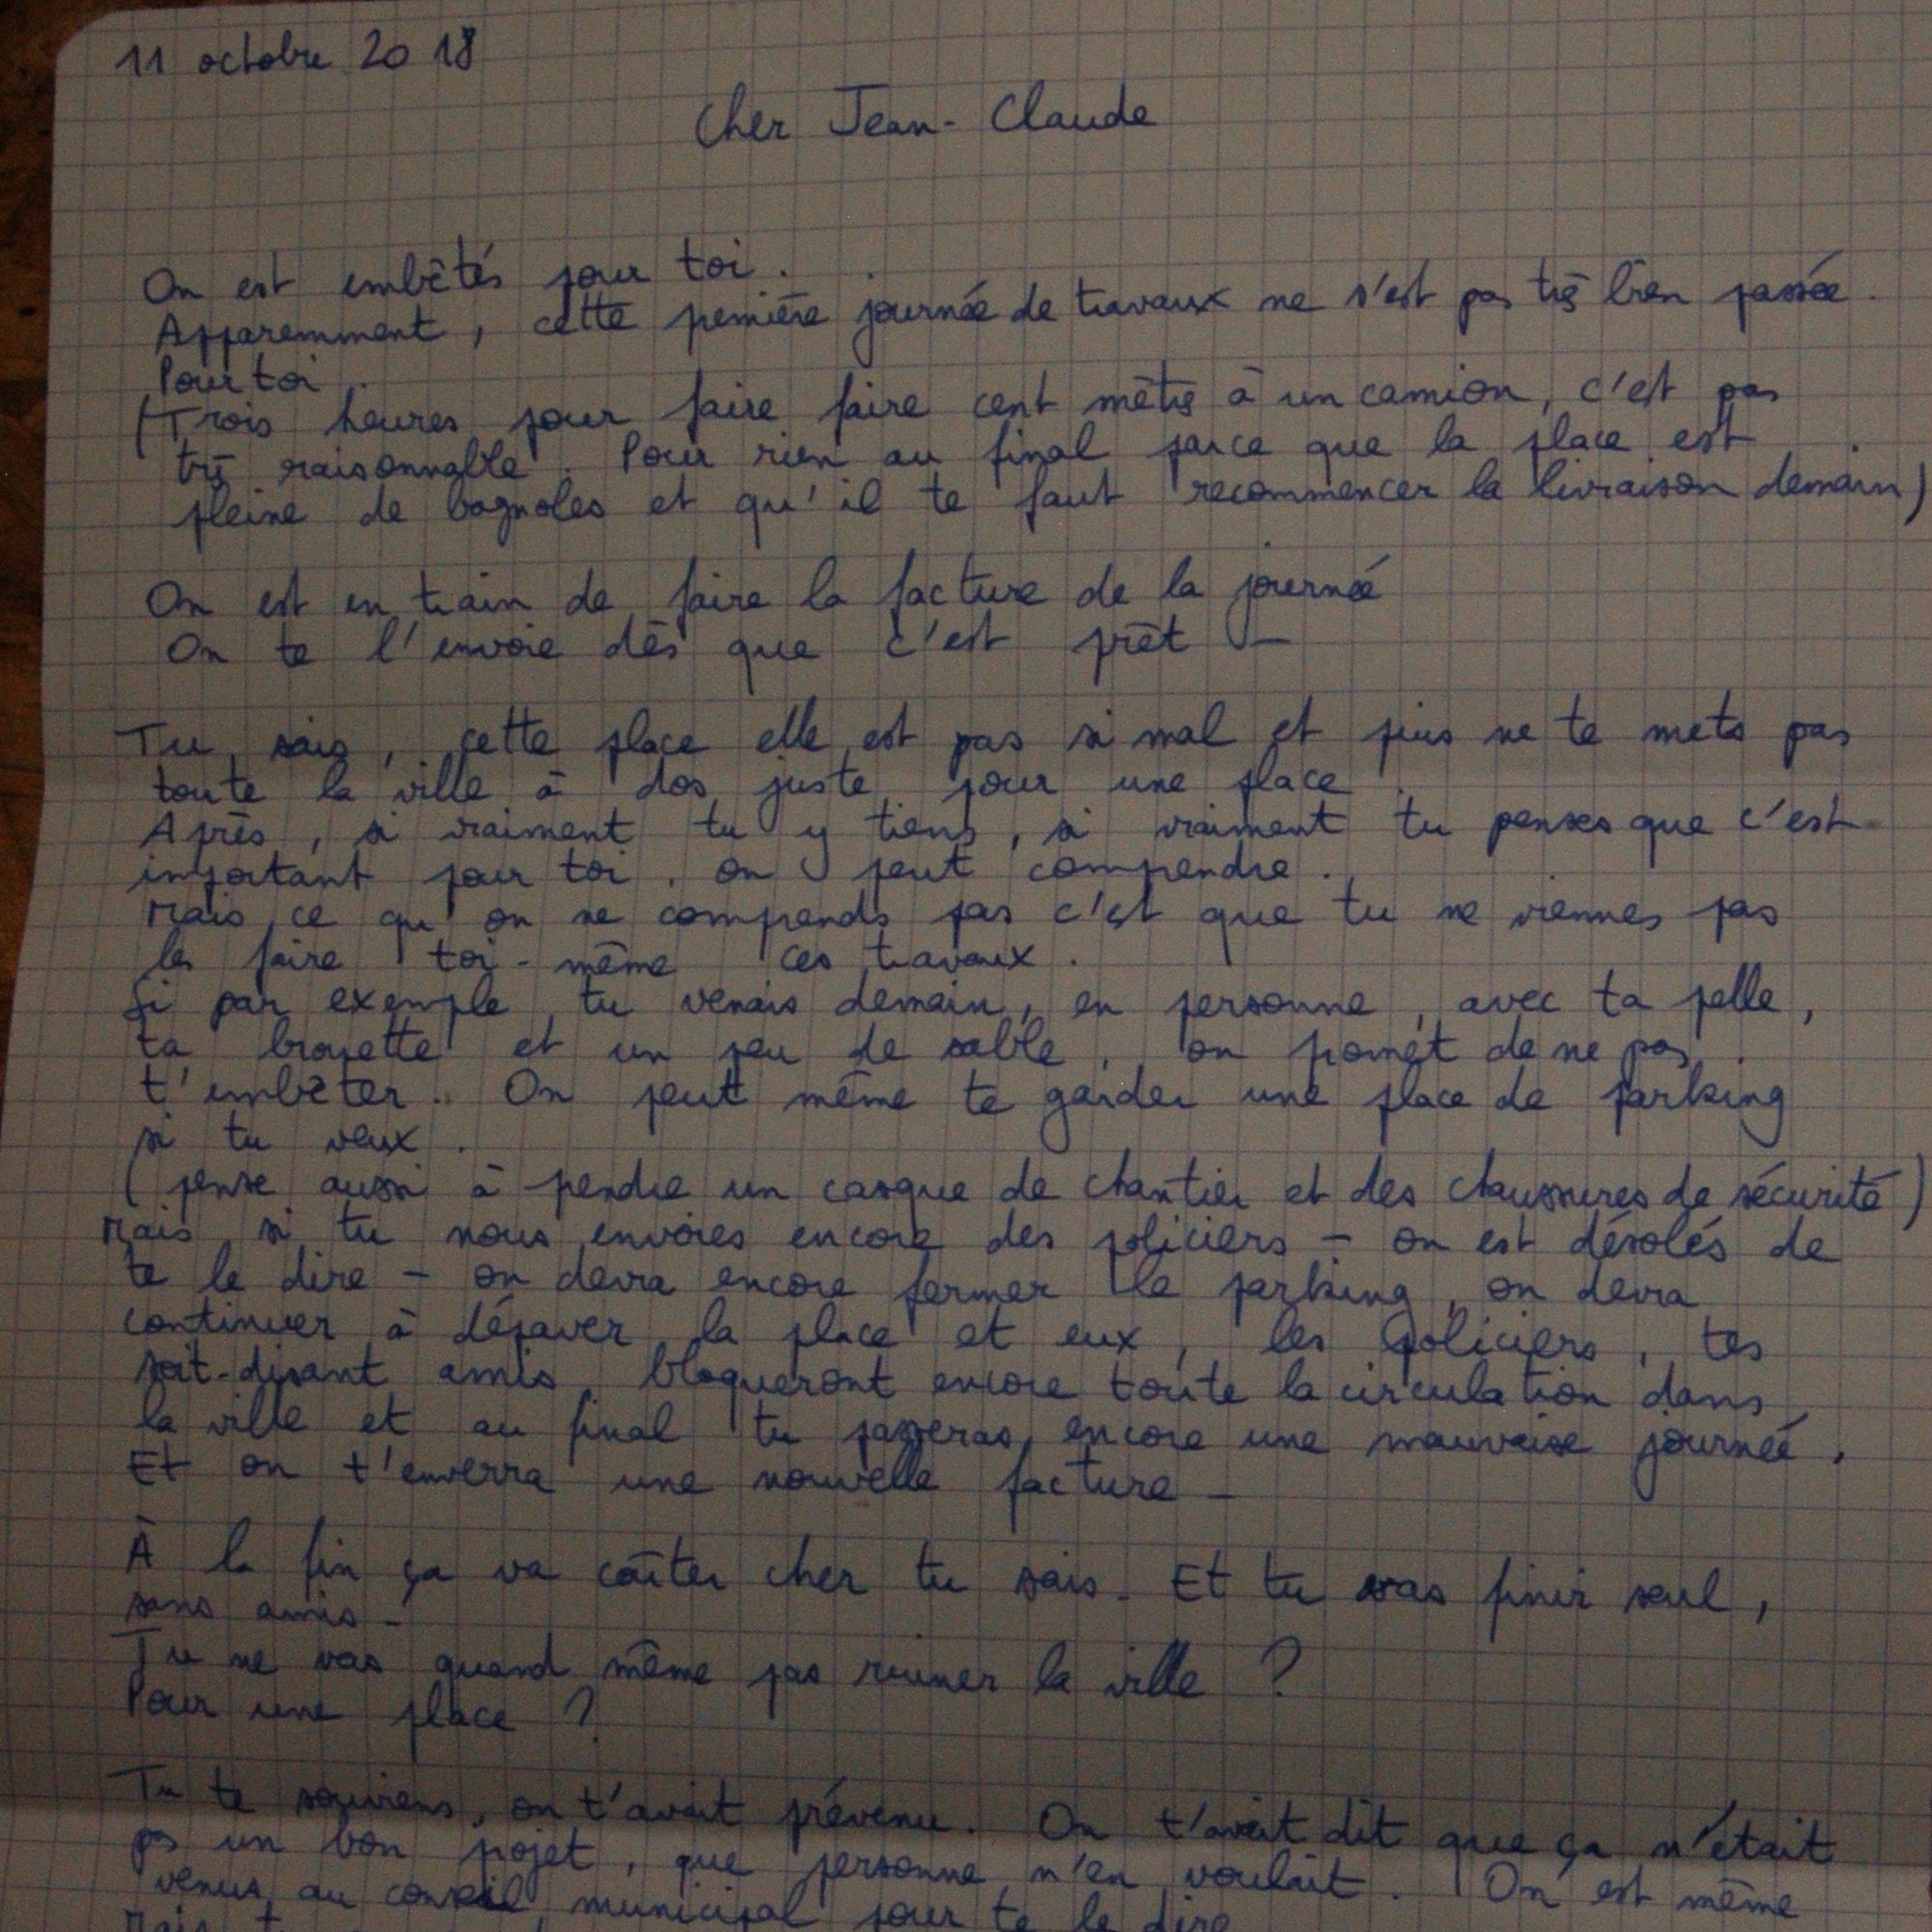 11 octobre 2018
Cher Jean-Claude
On est embêtés pour toi.
Apparemment, cette première journée de travaux ne s'est pas très bien passée
Pour toi.
(Trois heures pour faire faire cent mètres à un camion, c'est pas
très raisonnable. Pour rien au final parce que la place est
pleine de bagnoles et qu'il te faut recommencer la livraison demain)
On est en train de faire la facture de la journée
On te l'envoie dès que c'est prêt -
Tu sais, cette place elle est pas si mal et puis ne te mets pas
toute la ville à dos juste pour une place.
Après, si vraiment tu y tiens, si vraiment tu penses que c'est
important pour toi, on peut comprendre.
Mais ce qu'on ne comprends pas c'est que tu ne viennes pas
les faire toi-même ces travaux.
Si par exemple tu venais demain, en personne, avec ta pelle,
ta brouette et un peu de sable, on promet de ne pas
t'embêter.. On peut même te garder une place de parking
si tu veux.
(pense aussi à prendre un casque de chantier et des chaussures de sécurité)
Mais si tu nous envoies encore des policiers - on est désolés de
te le dire - on devra encore fermer le parking, on devra
continuer à dépaver la place et eux, les policiers, tes
soit-disant amis, bloqueront encore toute la circulation dans
la ville et au final tu passeras encore une mauvaise journée.
Et on t'enverra une nouvelle facture -
À la fin ça va coûter cher tu sais. Et tu vas finir seul,
sans amis -
Tu ne vas quand même pas ruiner la ville ?
Pour une place ?
Tu te souviens, on t'avait prévenu. On t'avait dit que ça n'était
pas un bon projet, que personne n'en voulait. On est même
venus au conseil municipal pour te le dire
Mais